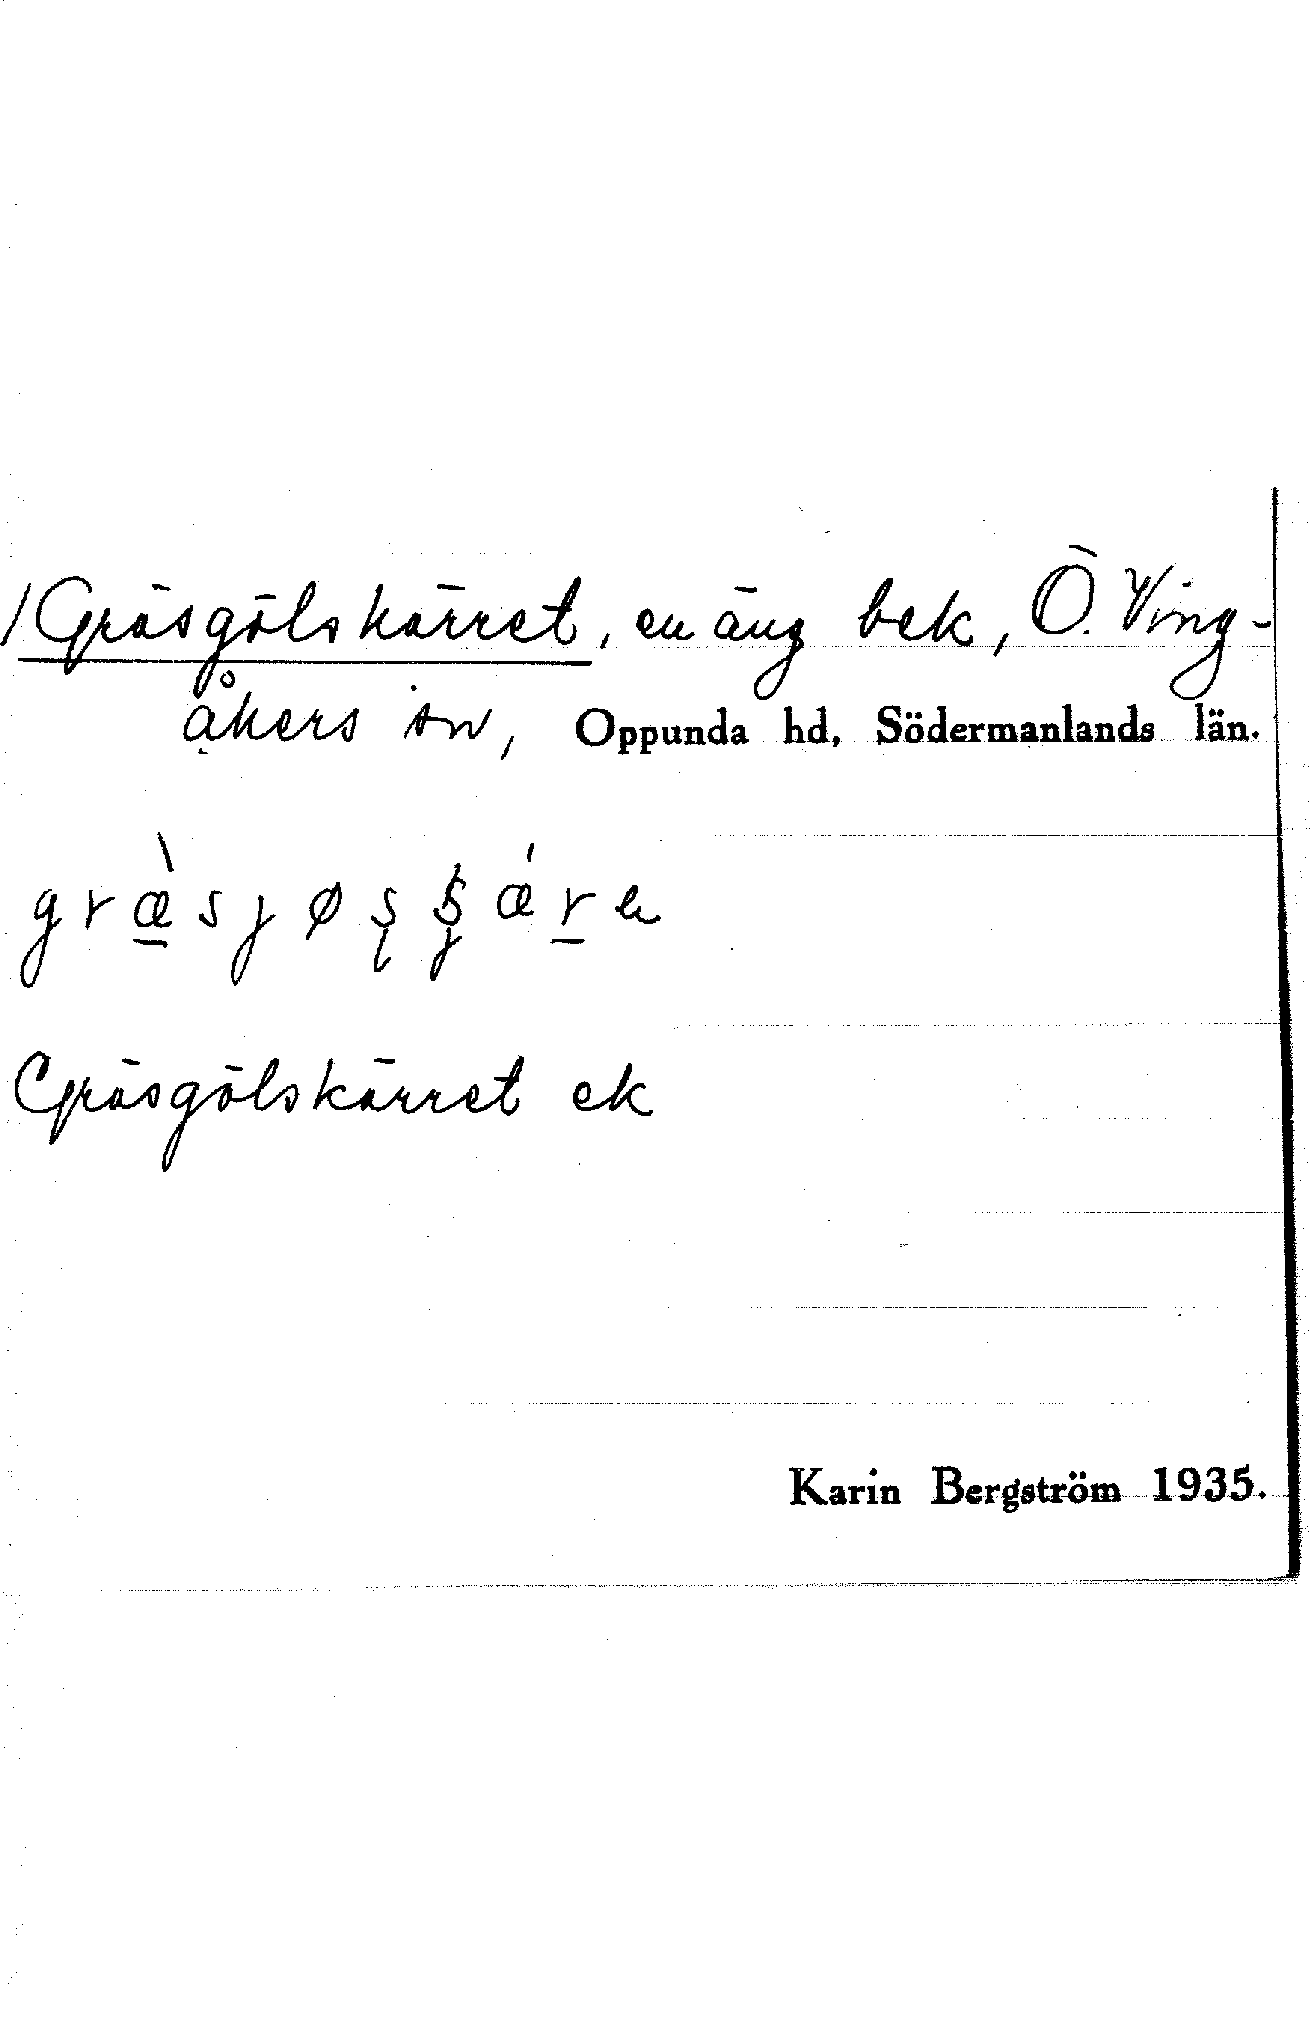 /Gräsgölskärret, en äng bek, Ö. Ving-
åkers sn, Oppunda hd, Södermanlands län.
Gräsgölskärret ek
Karin Bergström 1935.